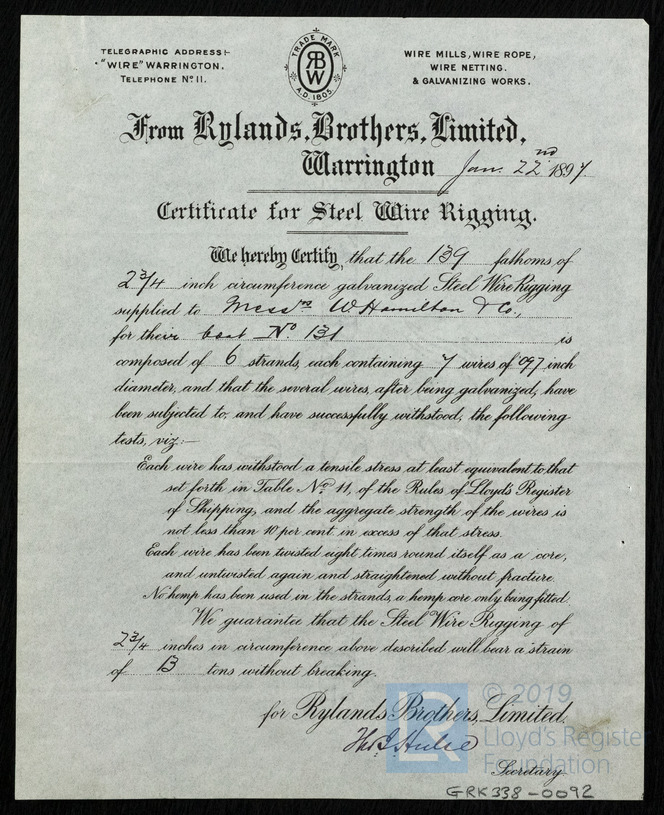 TELEGRAPHIC ADDRESS:-
"WIRE" WARRINGTON.
TELEPHONE No 11.
TRADE MARK
RB
W
A.D. 1805.
WIRE MILLS, WIRE ROPE,
WIRE NETTING.
& GALVANIZING WORKS.
From Rylands, Brothers, Limited,
Warrington Jan. 22nd 1897
Certificate for Steel Wire Rigging.
We hereby Certify, that the 139 fathoms of
2 3/4 inch circumference galvanized Steel Wire Rigging
supplied to Messrs W. Hamilton & Co.,
for their boat No. 131 is
composed of 6 strands, each containing 7 wires of .097 inch
diameter, and that the several wires, after being galvanized, have
been subjected to, and have successfully withstood, the following
tests, viz:—
Each wire has withstood a tensile stress, at least equivalent to that
set forth in Table No. 11, of the Rules of Lloyd's Register
of Shipping, and the aggregate strength of the wires is
not less than 10 per cent in excess of that stress.
Each wire has been twisted eight times round itself as a core,
and untwisted again and straightened without fracture.
No hemp has been used in the strands, a hemp core only being fitted.
We guarantee that the Steel Wire Rigging of
2 3/4 inches in circumference above described will bear a strain
of 13 tons without breaking.
for Rylands Brothers, Limited.
Hulse
Secretary.
LR
© 2019
Lloyd's Register
Foundation
GRK338-0092